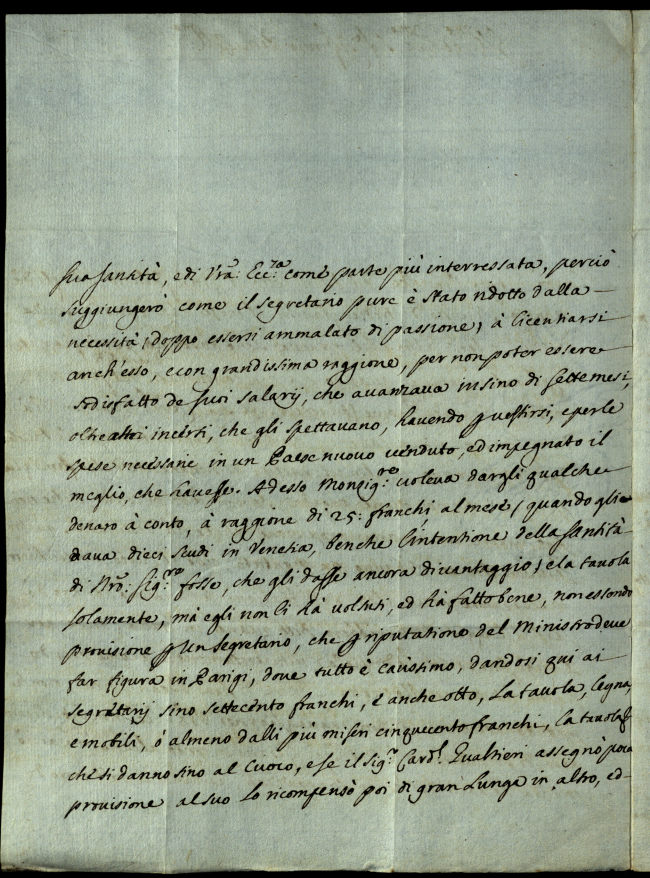 sua santità, e di Vrã: Ecc:za come parte più interressata, perciò
suggiungerò come il segretario pure è stato ridotto dalla
necessità, doppo essersi ammalato di passione, à licentiarsi
anch'esso, e con grandissima raggione, per non poter essere
sodisfatto de suoi salarij, che avanzava in sino di sette mesi,
oltre altri incerti, che gli spettavano, havendo p vestirsi, e per le
spese necessarie in un Paese nuovo venduto, ed impegnato il
meglio, che havesse. Adesso Monsig:re voleva dargli qualche
denaro à conto, à raggione di 25: franchi al mese (quando gli
dava dieci scudi in Venetia, benche l'intentione della santità
di Nrõ: sig:re fosse, che gli dasse ancora di vantaggio) e la tavola
solamente, mà egli non li hà volsuti, ed hà fatto bene, non essendo
provisione p un segretario, che p riputatione del Ministro deve
far figura in Parigi, dove tutto è carissimo, dandosi qui ai
segretarij sino settecento franchi, e anche otto, la tavola, legna,
e mobili, ò almeno dalli più miseri cinquecento franchi, la tavola
che si danno sino al Cuoco, e se il sig:r Card:l Gualtieri assegnò poca
provisione al suo lo ricompensò poi di gran lunga in altro, ed